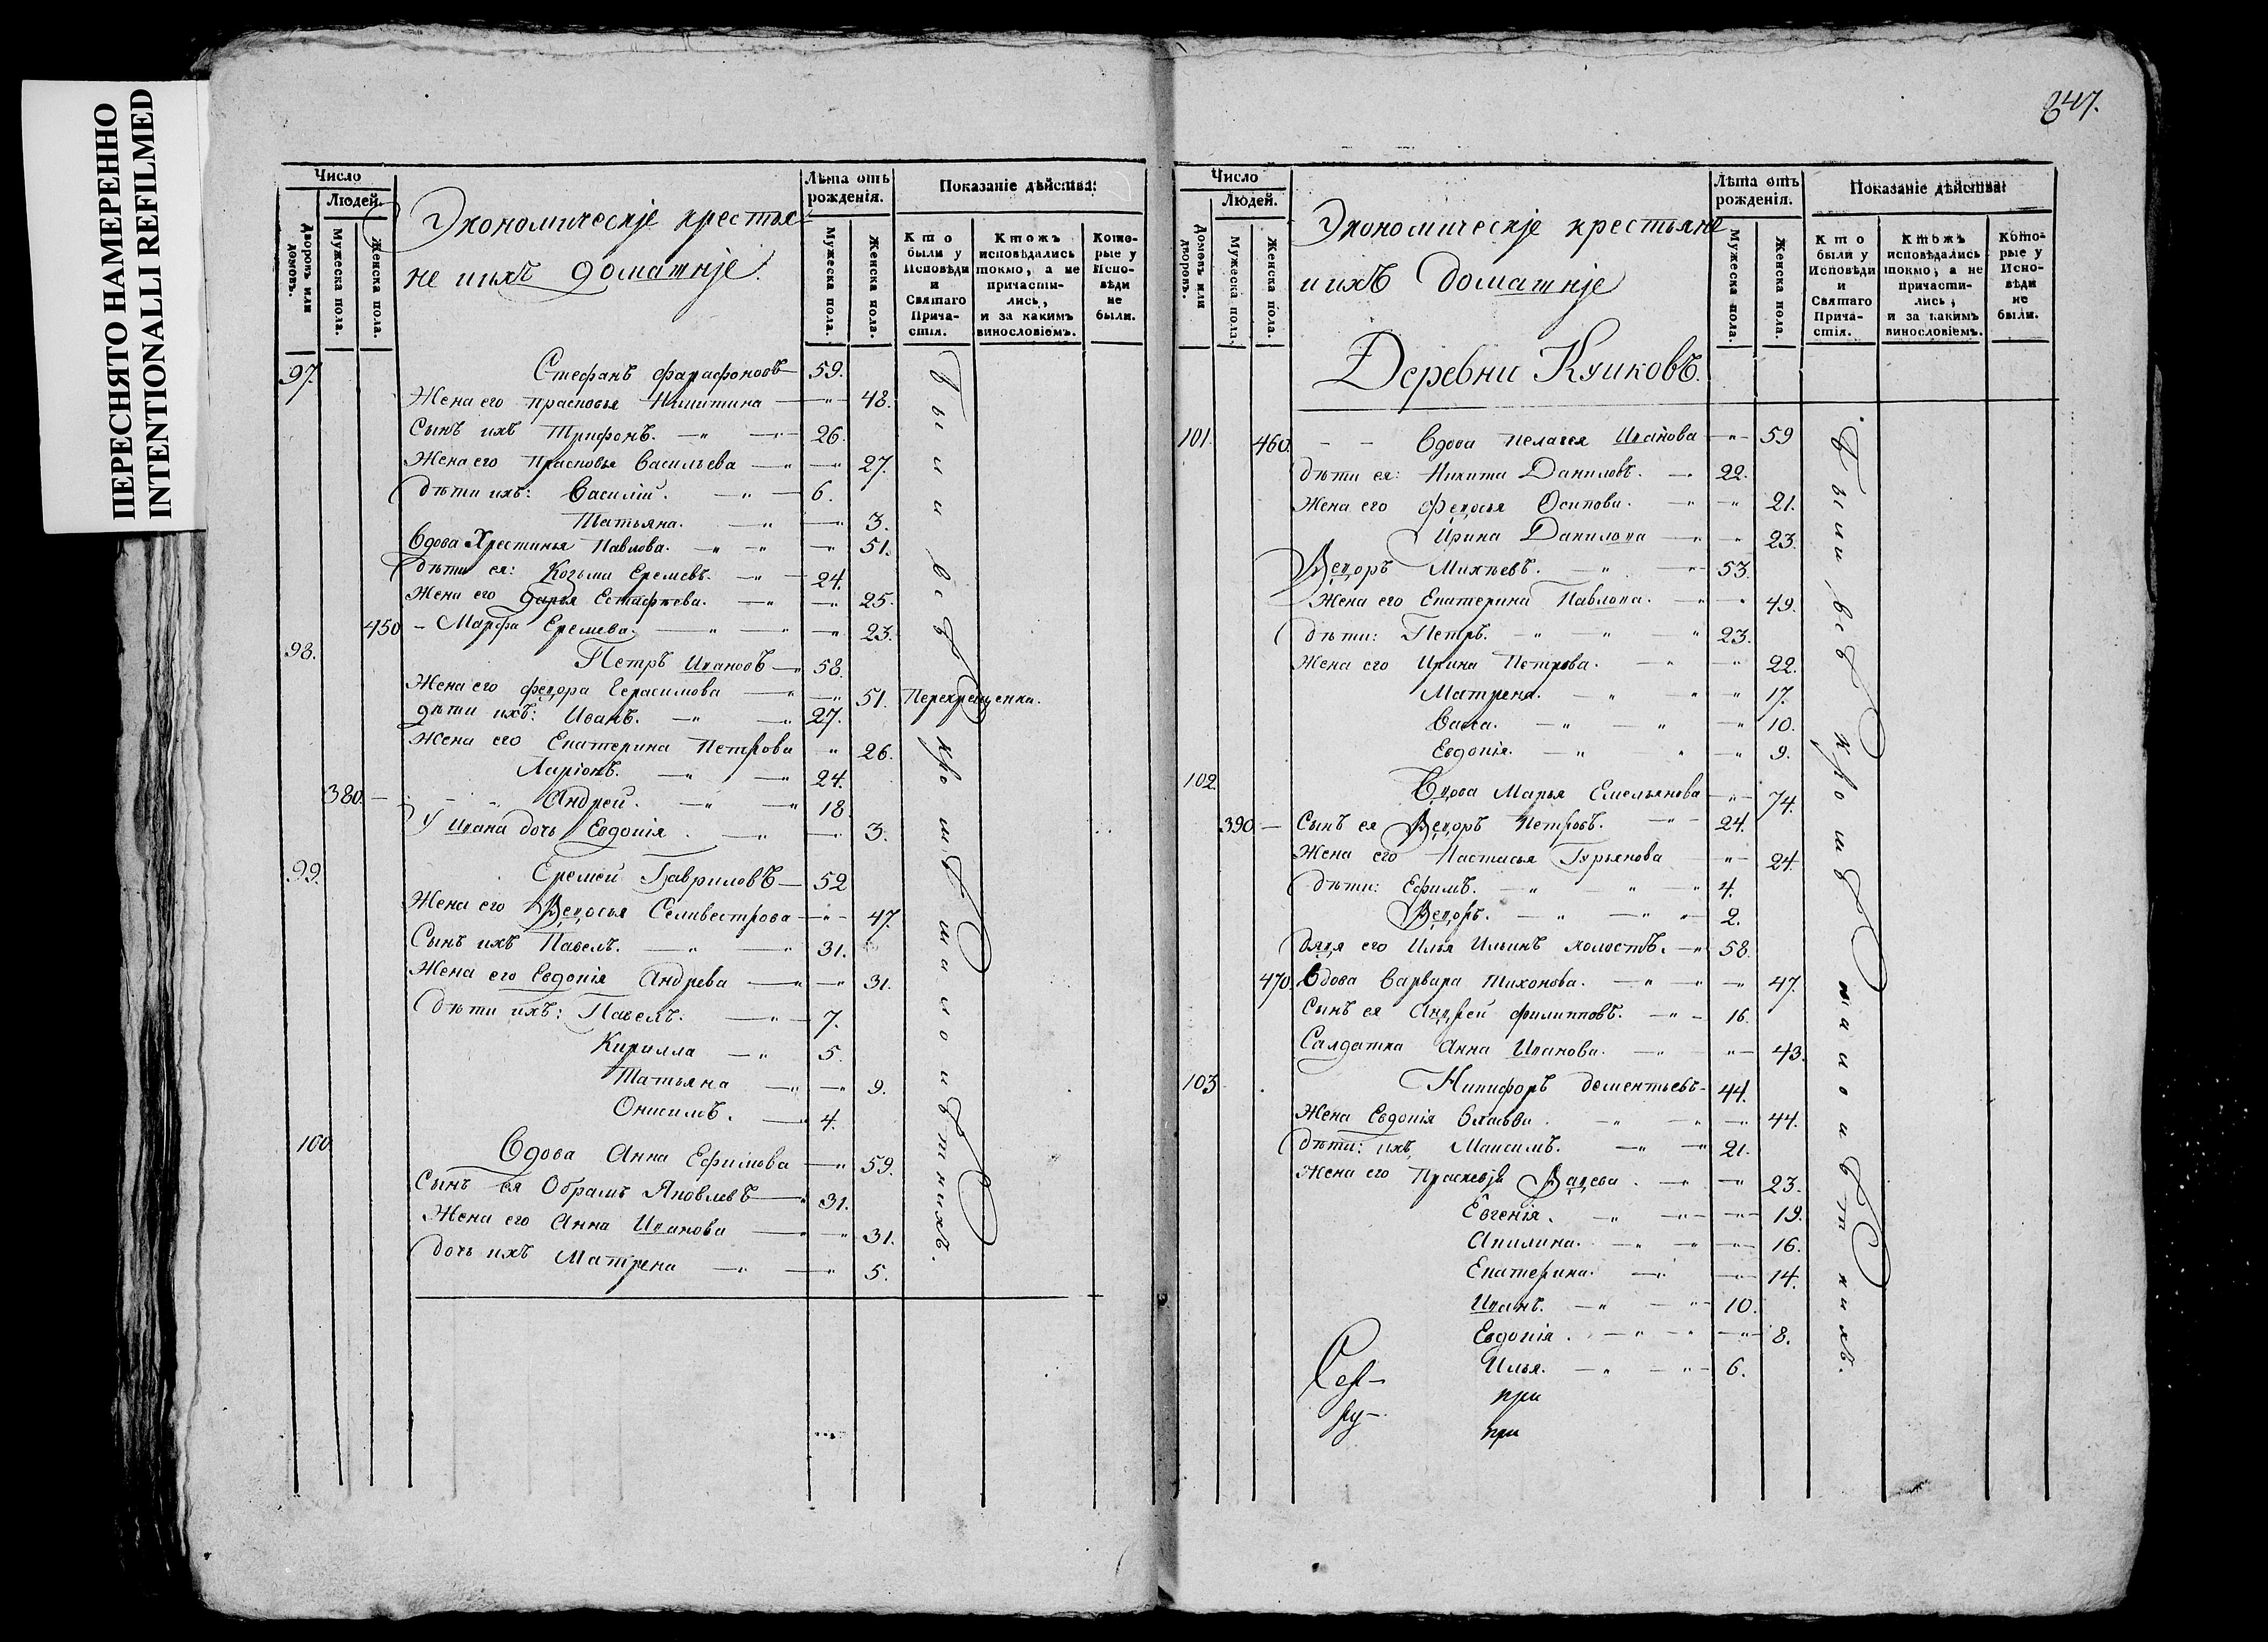 ПЕРЕСНЯТО НАМЕРЕННО
INTENTIONALLI REFILMED
Число
Людей.
Дворовъ или домовъ.
Мужеска пола.
Женска пола.
Экономическіе крестья-
не и ихъ домашніе.
Лѣта отъ рожденія.
Мужеска пола.
Женска пола.
Показаніе дѣйства:
Кто были у Исповѣди и Святаго Прича-стія.
Ктожъ исповѣдались токмо, а не причасти-лись, и за какимъ винословіемъ.
Кото-рые у Испо-вѣди не были.
97. Стефанъ Фарафоновъ 59.
Жена его Прасковья Никитина — " — 48.
Сынъ ихъ Трифонъ. — " — 26.
Жена его Прасковья Васильева — " — 27.
дѣти ихъ: Василій. — " — 6.
Татьяна. — " — 3.
Вдова Хрестинья Павлова. — " — 51.
дѣти ея: Козьма Еремеевъ. — " — 24.
Жена его Дарья Естафьева. — " — 25.
450 – Марфа Еремева. — " — 23.
98. Петръ Ивановъ — 58.
Жена его Федора Герасимова — " — 51. Перекрещенка.
дѣти ихъ: Иванъ. — " — 27.
Жена его Екатерина Петрова " 26.
Ларіонъ. — " — 24.
380. — Андрей. — " — 18
У Ивана дочь Евдокія. — " — 3.
99. Еремей Гавриловъ — 52
Жена его Ѳедосья Селивестрова — " — 47.
Сынъ ихъ Павелъ. — " — 31.
Жена его Евдокія Андрева — " — 31.
Дѣти ихъ: Павелъ. — " — 7.
Кирилла — " 5.
Татьяна — " — 9.
Онисимъ. — " 4.
100 Вдова Анна Ефимова — " 59.
Сынъ ея Обрамъ Яковлевъ — 31.
Жена его Анна Иванова — " 31.
дочь ихъ Матрена — " — 5.
Были всѣ кромѣ малолѣтнихъ.
647.
Число
Людей.
Домовъ или дворовъ.
Мужеска пола.
Женска пола.
Экономическіе крестьяне
и ихъ домашніе
Лѣта отъ рожденія.
Мужеска пола.
Женска пола.
Показаніе дѣйства:
Кто были у Исповѣди и Святаго Прича-стія.
Ктожъ исповѣдались токмо, а не причасти-лись, и за какимъ винословіемъ.
Кото-рые у Испо-вѣди не были.
Деревни Куиковъ.
101. 460. – – Вдова Пелагея Иванова — " — 59
дѣти ея: Никита Даниловъ. — 22.
Жена его Федосья Осипова. — " — 21.
Ирина Данилова — " 23.
Ѳедоръ Михѣевъ. — " — 53.
Жена его Екатерина Павлова. — " 49.
дѣти: Петръ. — " — " 23.
Жена его Ирина Петрова. — " 22.
Матрена. — " — " 17.
Васса. — " — " 10.
Евдокія. — " " 9.
102. Вдова Марья Емельянова — " — 74.
390 — Сынъ ея Ѳедоръ Петровъ. — " — 24.
Жена его Настасья Гурьянова " — 24.
дѣти: Ефимъ. — " — " 4.
Ѳедоръ. — " — " 2.
дядя его Илья Ильинъ холостъ. — " 58.
470. Вдова Варвара Тихонова. — " — 47.
Сынъ ея Андрей Филипповъ. — " — 16.
Салдатка Анна Иванова. — " — 43.
103 Никифоръ Дементьевъ – 44.
Жена Евдокія — " — 44.
дѣти: ихъ, Максимъ. — " 21.
Жена его Ѳадева. — " 23.
Евгенія. — " — 19.
Акилина. — " — 16.
Екатерина. — " — 14.
Иванъ. — " — 10.
Евдокія. — " — 8.
Илья. — " — 6.
при
при
Были всѣ кромѣ малолѣтнихъ.